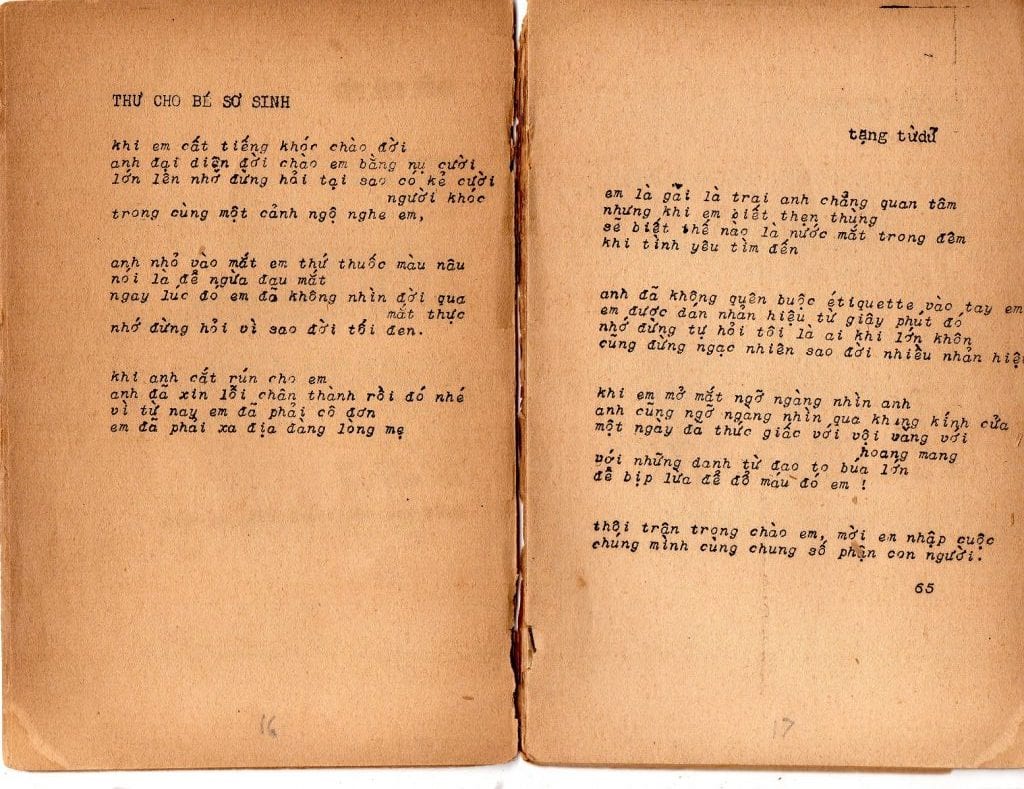 THƯ CHO BÉ SƠ SINH
khi em cất tiếng khóc chào đời
anh đại diện đời chào em bằng nụ cười
lớn lên nhớ đừng hải tại sao có kẻ cười
người khóc
trong cùng một cảnh ngộ nghe em,
anh nhỏ vào mắt em thứ thuốc màu nâu
nói là để ngừa đau mắt
ngay lúc đó em đã không nhìn đời qua
mắt thực
nhớ đừng hỏi vì sao đời tối đen.
khi anh cắt rún cho em
anh đã xin lỗi chân thành rồi đó nhé
vì từ nay em đã phải cô đơn
em đã phải xa địa đàng lòng mẹ
16
tặng từdũ
em là gái là trai anh chẳng quan tâm
nhưng khi em biết thẹn thùng
sẽ biết thế nào là nước mắt trong đêm
khi tình yêu tìm đến
anh đã không quên buộc étiquette vào tay em
em được dán nhản hiệu từ giây phút đó
nhớ đừng tự hỏi tôi là ai khi lớn khôn
cũng đừng ngạc nhiên sao đời nhiều nhản hiệu
khi em mở mắt ngỡ ngàng nhìn anh
anh cũng ngỡ ngàng nhìn qua khung kính cửa
một ngày đã thức giấc với vội vàng với
hoang mang
với những danh từ đao to búa lớn
để bịp lừa để đổ máu đó em !
thôi trân trọng chào em, mời em nhập cuộc
chúng mình cùng chung số phận con người.
65
17